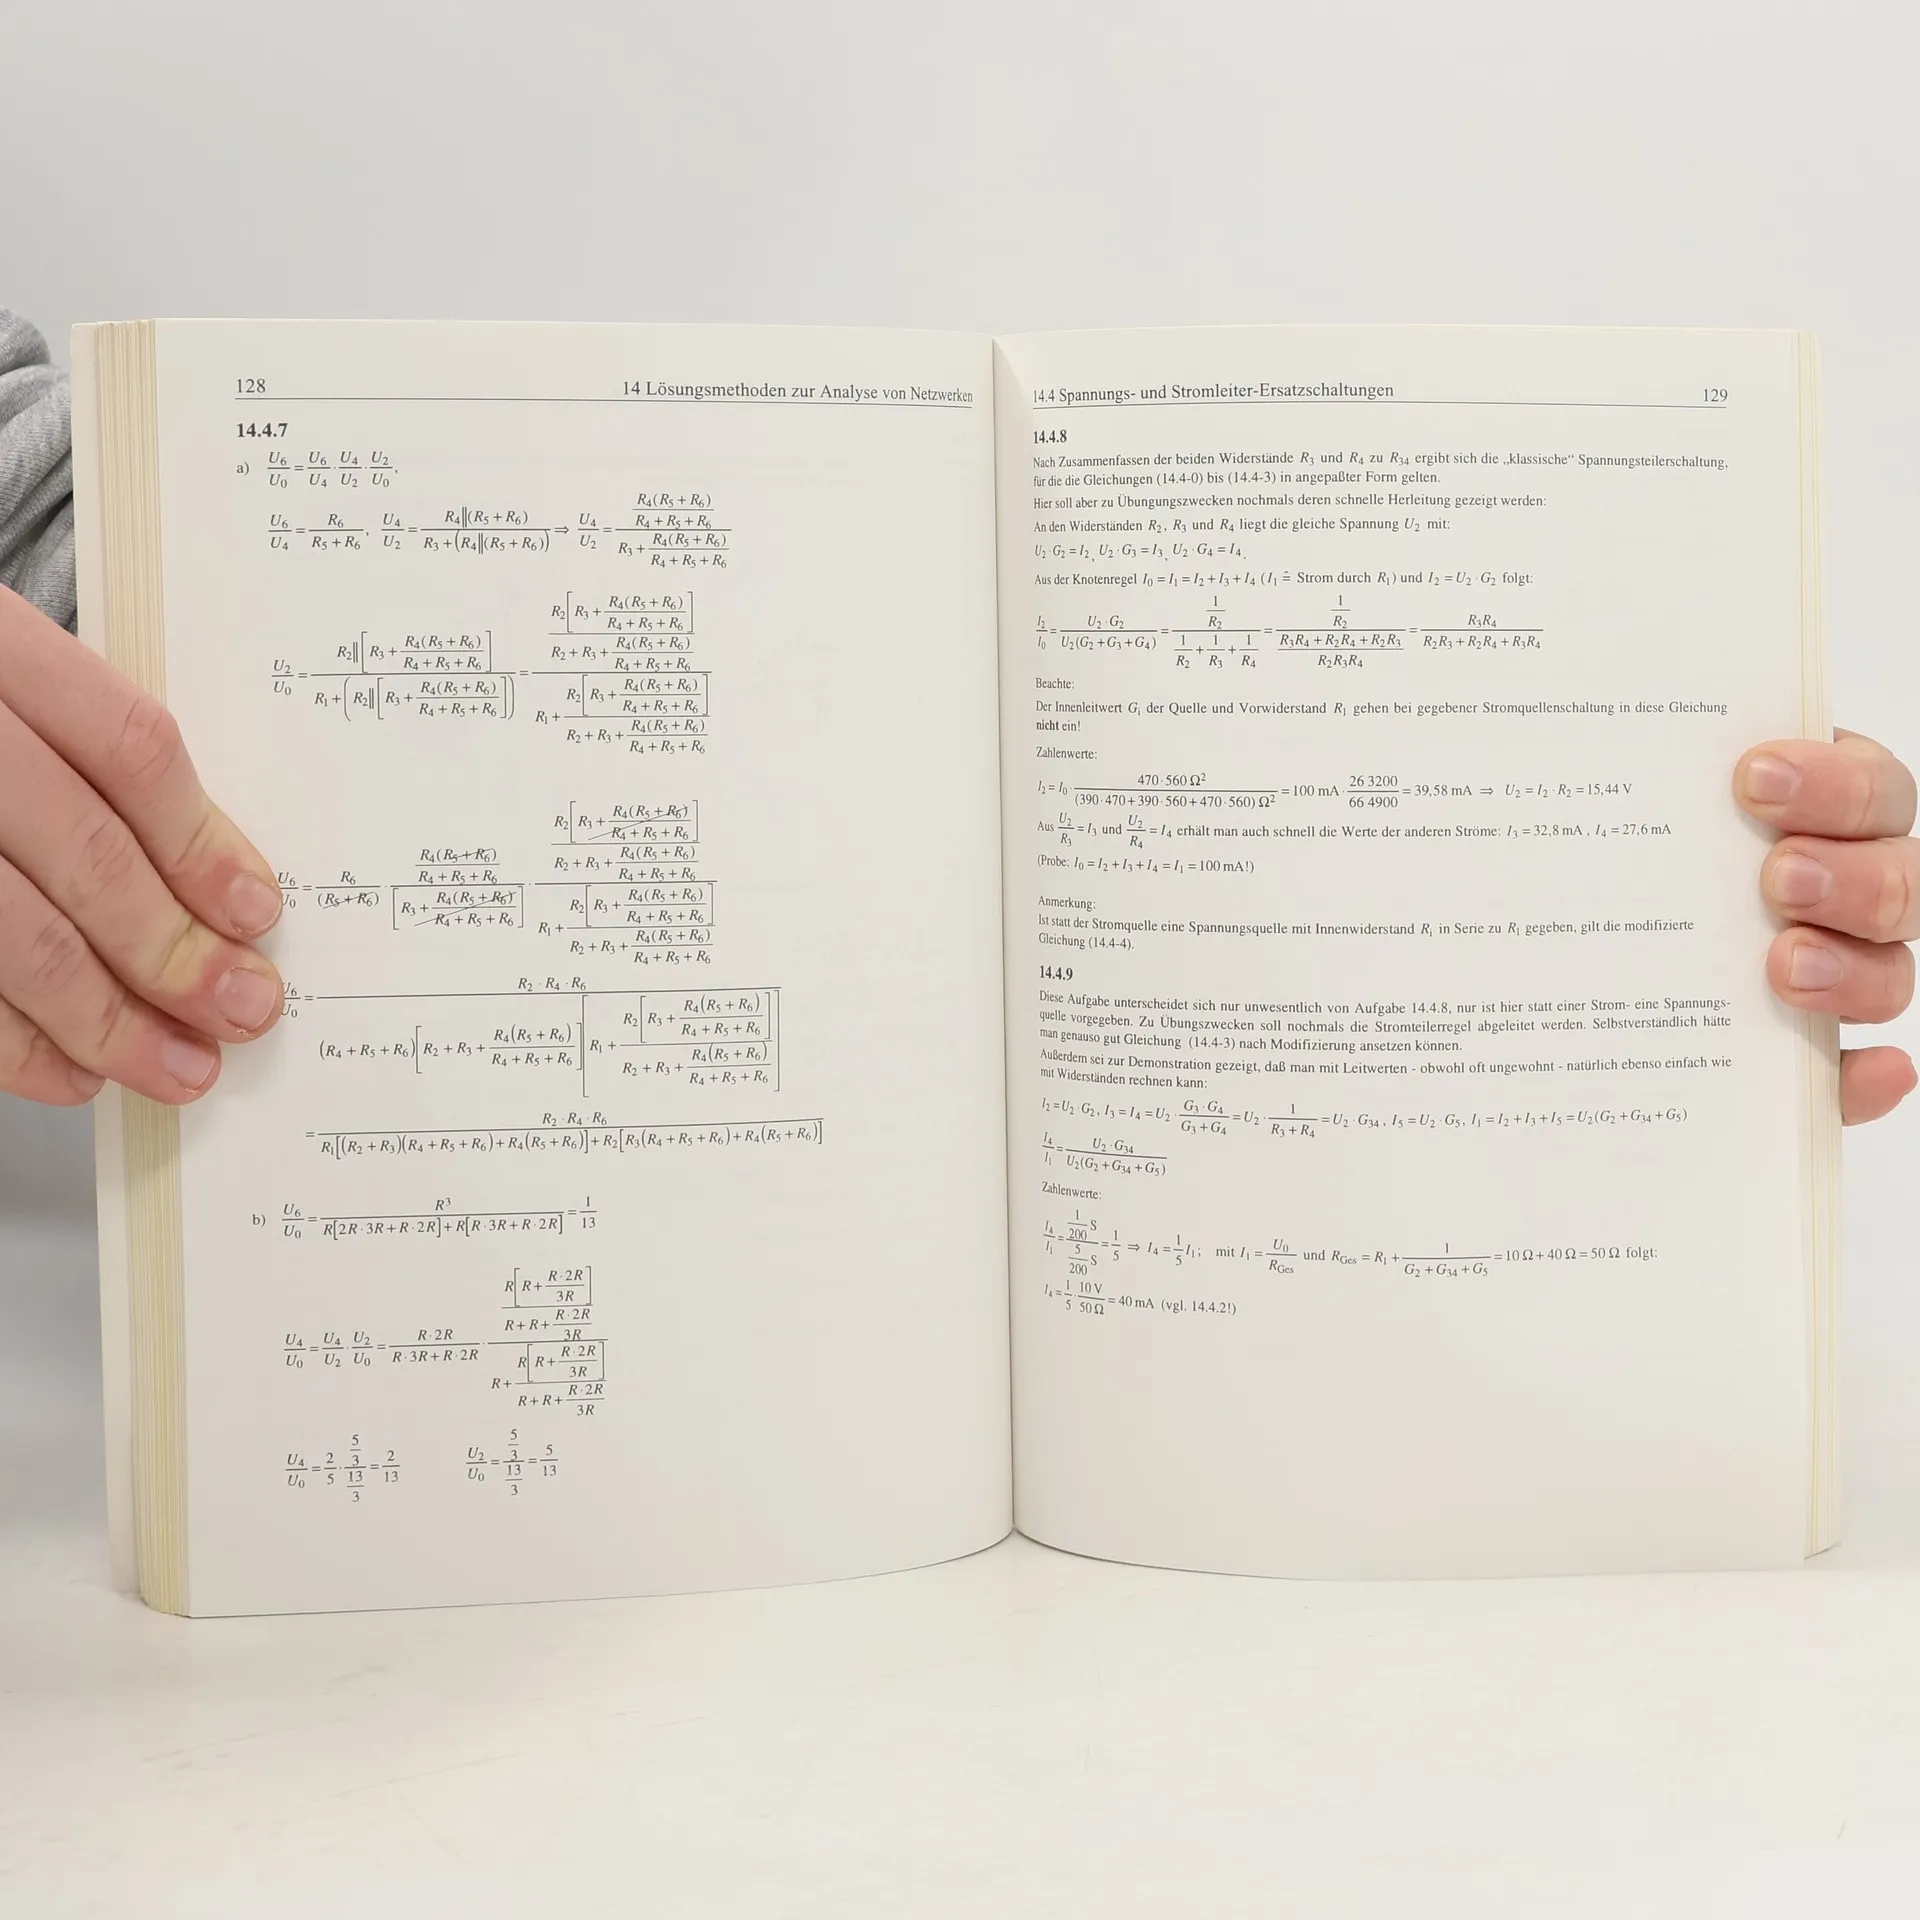 128 14 Lösungsmethoden zur Analyse von Netzwerken
14.4.7
a) U₆/U₀ = U₆/U₄ · U₄/U₂ · U₂/U₀,
U₆/U₄ = R₆/(R₅ + R₆), U₄/U₂ = R₄||(R₅ + R₆) / (R₃ + (R₄||(R₅ + R₆))) ⇒ U₄/U₂ = [R₄(R₅ + R₆)/(R₄ + R₅ + R₆)] / [R₃ + R₄(R₅ + R₆)/(R₄ + R₅ + R₆)]
U₂/U₀ = R₂||[R₃ + R₄(R₅ + R₆)/(R₄ + R₅ + R₆)] / (R₁ + (R₂||[R₃ + R₄(R₅ + R₆)/(R₄ + R₅ + R₆)])) = {R₂[R₃ + R₄(R₅ + R₆)/(R₄ + R₅ + R₆)] / (R₂ + R₃ + R₄(R₅ + R₆)/(R₄ + R₅ + R₆))} / {R₁ + R₂[R₃ + R₄(R₅ + R₆)/(R₄ + R₅ + R₆)] / (R₂ + R₃ + R₄(R₅ + R₆)/(R₄ + R₅ + R₆))}
U₆/U₀ = R₆/(R₅ + R₆) · [R₄(R₅ + R₆)/(R₄ + R₅ + R₆)] / [R₃ + R₄(R₅ + R₆)/(R₄ + R₅ + R₆)] · {R₂[R₃ + R₄(R₅ + R₆)/(R₄ + R₅ + R₆)] / (R₂ + R₃ + R₄(R₅ + R₆)/(R₄ + R₅ + R₆))} / {R₁ + R₂[R₃ + R₄(R₅ + R₆)/(R₄ + R₅ + R₆)] / (R₂ + R₃ + R₄(R₅ + R₆)/(R₄ + R₅ + R₆))}
U₆/U₀ = R₂ · R₄ · R₆ / ((R₄ + R₅ + R₆)[R₂ + R₃ + R₄(R₅ + R₆)/(R₄ + R₅ + R₆)][R₁ + R₂[R₃ + R₄(R₅ + R₆)/(R₄ + R₅ + R₆)] / (R₂ + R₃ + R₄(R₅ + R₆)/(R₄ + R₅ + R₆))])
= R₂ · R₄ · R₆ / (R₁[(R₂ + R₃)(R₄ + R₅ + R₆) + R₄(R₅ + R₆)] + R₂[R₃(R₄ + R₅ + R₆) + R₄(R₅ + R₆)])
b) U₆/U₀ = R³ / (R[2R · 3R + R · 2R] + R[R · 3R + R · 2R]) = 1/13
U₄/U₀ = U₄/U₂ · U₂/U₀ = R · 2R / (R · 3R + R · 2R) · {R[R + R · 2R/3R] / (R + R + R · 2R/3R)} / {R + R[R + R · 2R/3R] / (R + R + R · 2R/3R)}
U₄/U₀ = 2/5 · (5/3)/(13/3) = 2/13 U₂/U₀ = (5/3)/(13/3) = 5/13
14.4 Spannungs- und Stromleiter-Ersatzschaltungen 129
14.4.8
Nach Zusammenfassen der beiden Widerstände R₃ und R₄ zu R₃₄ ergibt sich die „klassische“ Spannungsteilerschaltung,
für die die Gleichungen (14.4-0) bis (14.4-3) in angepaßter Form gelten.
Hier soll aber zu Übungungszwecken nochmals deren schnelle Herleitung gezeigt werden:
An den Widerständen R₂, R₃ und R₄ liegt die gleiche Spannung U₂ mit:
U₂ · G₂ = I₂, U₂ · G₃ = I₃, U₂ · G₄ = I₄.
Aus der Knotenregel I₀ = I₁ = I₂ + I₃ + I₄ (I₁ ≙ Strom durch R₁) und I₂ = U₂ · G₂ folgt:
I₂/I₀ = U₂ · G₂ / (U₂(G₂ + G₃ + G₄)) = (1/R₂) / (1/R₂ + 1/R₃ + 1/R₄) = (1/R₂) / ((R₃R₄ + R₂R₄ + R₂R₃)/(R₂R₃R₄)) = R₃R₄ / (R₂R₃ + R₂R₄ + R₃R₄)
Beachte:
Der Innenleitwert Gᵢ der Quelle und Vorwiderstand R₁ gehen bei gegebener Stromquellenschaltung in diese Gleichung
nicht ein!
Zahlenwerte:
I₂ = I₀ · 470 · 560 Ω² / ((390 · 470 + 390 · 560 + 470 · 560) Ω²) = 100 mA · 26 3200/66 4900 = 39,58 mA ⇒ U₂ = I₂ · R₂ = 15,44 V
Aus U₂/R₃ = I₃ und U₂/R₄ = I₄ erhält man auch schnell die Werte der anderen Ströme: I₃ = 32,8 mA , I₄ = 27,6 mA
(Probe: I₀ = I₂ + I₃ + I₄ = I₁ = 100 mA!)
Anmerkung:
Ist statt der Stromquelle eine Spannungsquelle mit Innenwiderstand Rᵢ in Serie zu R₁ gegeben, gilt die modifizierte
Gleichung (14.4-4).
14.4.9
Diese Aufgabe unterscheidet sich nur unwesentlich von Aufgabe 14.4.8, nur ist hier statt einer Strom- eine Spannungs-
quelle vorgegeben. Zu Übungszwecken soll nochmals die Stromteilerregel abgeleitet werden. Selbstverständlich hätte
man genauso gut Gleichung (14.4-3) nach Modifizierung ansetzen können.
Außerdem sei zur Demonstration gezeigt, daß man mit Leitwerten - obwohl oft ungewohnt - natürlich ebenso einfach wie
mit Widerständen rechnen kann:
I₂ = U₂ · G₂, I₃ = I₄ = U₂ · G₃ · G₄/(G₃ + G₄) = U₂ · 1/(R₃ + R₄) = U₂ · G₃₄, I₅ = U₂ · G₅, I₁ = I₂ + I₃ + I₅ = U₂(G₂ + G₃₄ + G₅)
I₄/I₁ = U₂ · G₃₄ / (U₂(G₂ + G₃₄ + G₅))
Zahlenwerte:
I₄/I₁ = (1/200 S)/(5/200 S) = 1/5 ⇒ I₄ = 1/5 I₁; mit I₁ = U₀/R_Ges und R_Ges = R₁ + 1/(G₂ + G₃₄ + G₅) = 10 Ω + 40 Ω = 50 Ω folgt:
I₄ = 1/5 · 10 V/50 Ω = 40 mA (vgl. 14.4.2!)